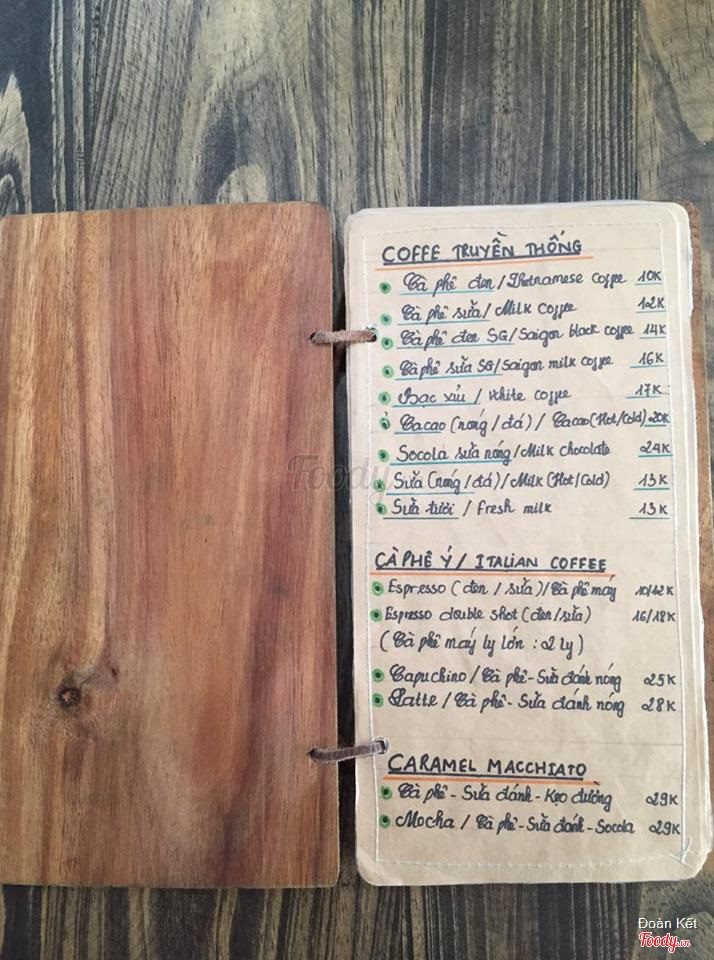 COFFE TRUYỀN THỐNG
Cà phê đen / Vietnamese coffee 10K
Cà phê sữa / Milk coffee 12K
Cà phê đen SG / Saigon black coffee 14K
Cà phê sữa SG / Saigon milk coffee 16K
Bạc xỉu / White coffee 17K
Cacao (nóng / đá) / Cacao (Hot / Cold) 20K
Socola sữa nóng / Milk chocolate 24K
Sữa (nóng / đá) / Milk (Hot / Cold) 13K
Sữa tươi / Fresh milk 13K
CÀ PHÊ Ý / ITALIAN COFFEE
Espresso (đen / sữa) / Cà phê máy 10/12K
Espresso double shot (đen / sữa) 16/18K
(Cà phê máy ly lớn : 2 ly)
Capuchino / Cà phê - Sữa đánh nóng 25K
Latte / Cà phê - Sữa đánh nóng 28K
CARAMEL MACCHIATO
Cà phê - Sữa đánh - Kẹo đường 29K
Mocha / Cà phê - Sữa đánh - Socola 29K
Foody
Đoàn Kết
Foody.vn